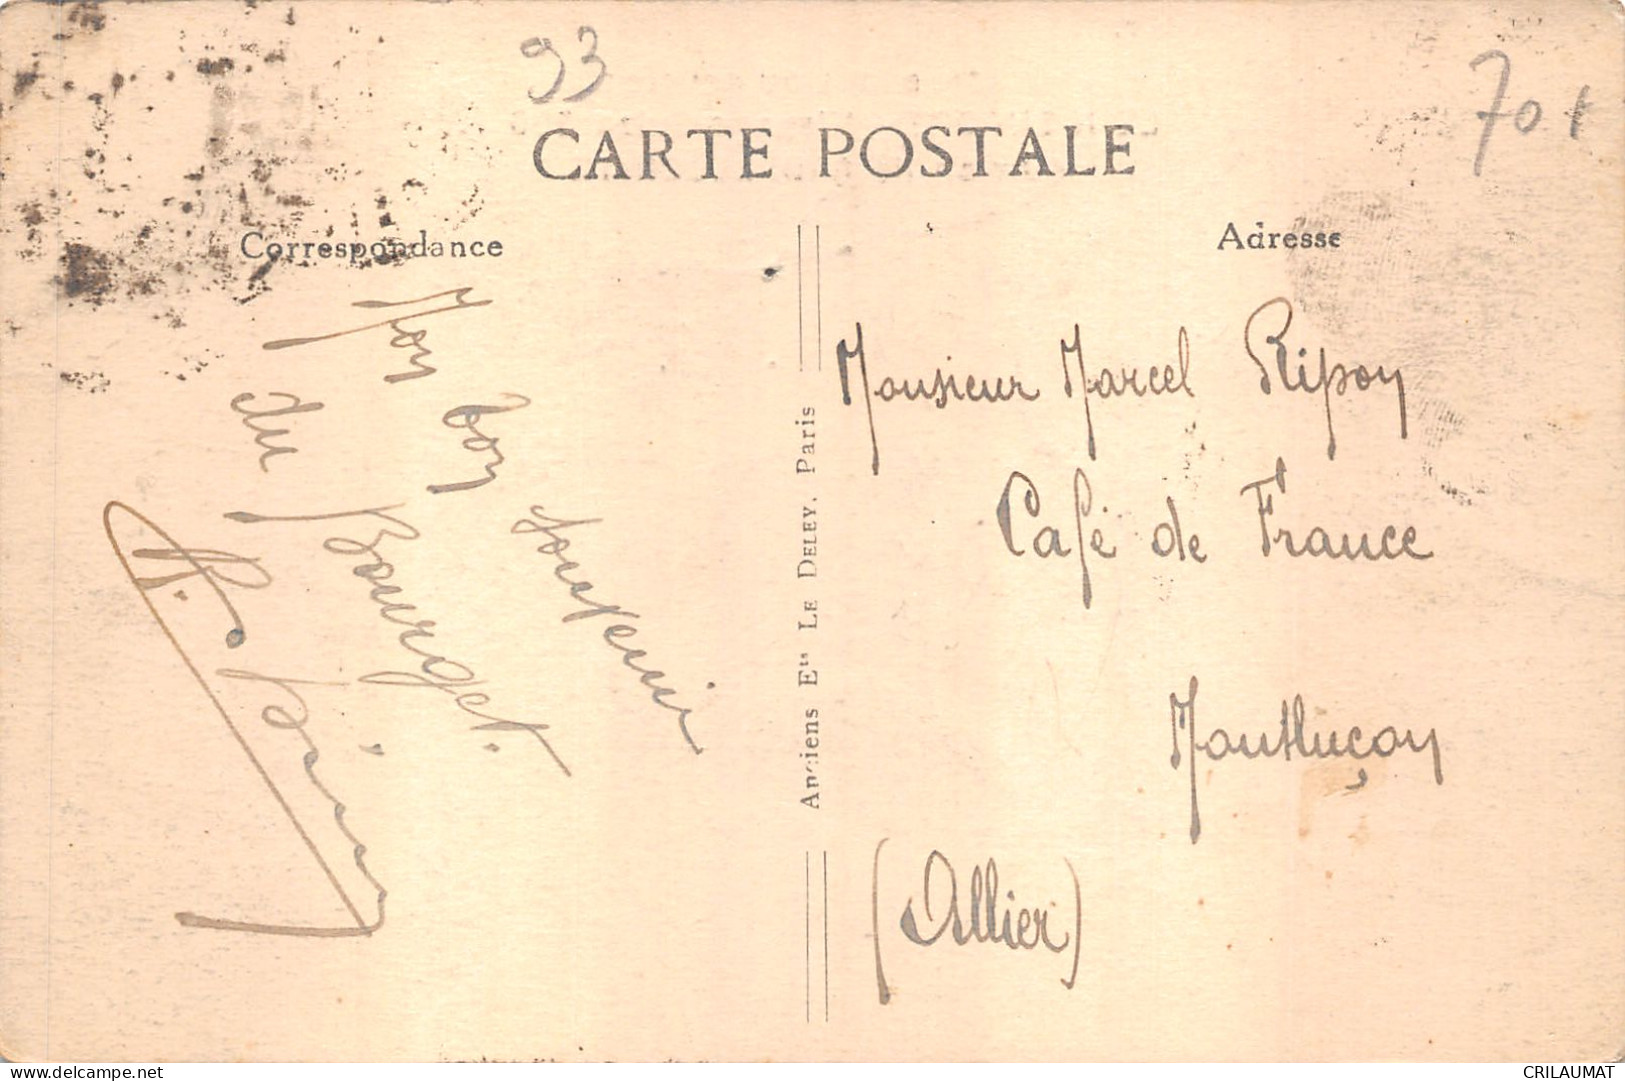 93
701
CARTE POSTALE
Correspondance
Adresse
Mon bon souvenir
du Bourget.
Anciens Ets LE DELEY, Paris
Monsieur Marcel Ripoy
Café de France
Montluçon
(Allier)
delcampe.net
CRILAUMAT